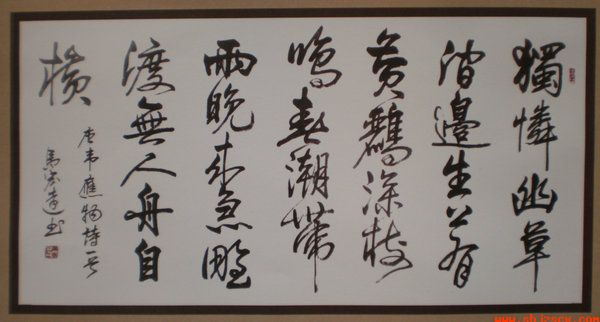 獨憐幽草
澗邊生上有
黃鸝深樹
鳴春潮帶
雨晚來急野
渡無人舟自
橫
唐韋應物詩一首